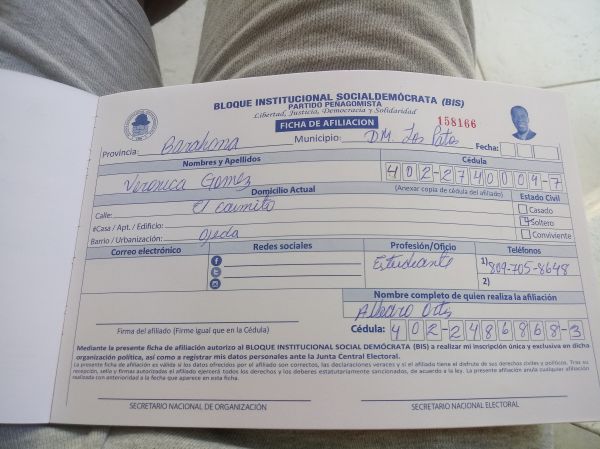 BLOQUE INSTITUCIONAL SOCIALDEMÓCRATA (BIS)
PARTIDO PEÑAGOMISTA
Libertad, Justicia, Democracia y Solidaridad
FICHA DE AFILIACION 158166
Provincia: Barahona Municipio: DM. Las Patos Fecha:
Nombres y Apellidos Cédula
Veronica Gomez 402-2740009-7
Domicilio Actual (Anexar copia de cédula del afiliado) Estado Civil
Calle: El caimito Casado
#Casa / Apt. / Edificio: Soltero
Barrio / Urbanización: Ojeda Conviviente
Correo electrónico Redes sociales Profesión/Oficio Teléfonos
Estudiante 1) 809-705-8648
2)
Nombre completo de quien realiza la afiliación
Ortis
Firma del afiliado (Firme igual que en la Cédula) Cédula: 402-2486868-3
Mediante la presente ficha de afiliación autorizo al BLOQUE INSTITUCIONAL SOCIAL DEMÓCRATA (BIS) a realizar mi inscripción única y exclusiva en dicha
organización política, así como a registrar mis datos personales ante la Junta Central Electoral.
La presente ficha de afiliación es válida si los datos ofrecidos por el afiliado son correctos, las declaraciones veraces y si el afiliado tiene el disfrute de sus derechos civiles y políticos. Tras su
recepción, sella y firmas autorizadas el afiliado ejercerá todos los derechos y los deberes estatutariamente sancionados, de acuerdo a la ley. La presente afiliación anula cualquier afiliación
realizada con anterioridad a la fecha que aparece en esta ficha.
SECRETARIO NACIONAL DE ORGANIZACIÓN SECRETARIO NACIONAL ELECTORAL